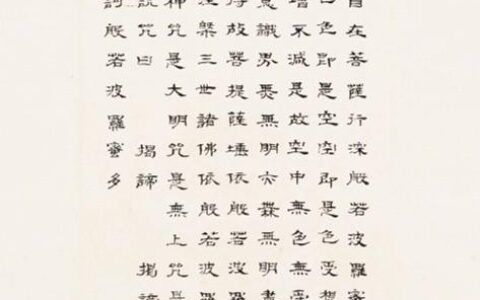 自在菩薩行深般若波羅蜜
色即是空空即是色受想
增不減是故空中無色無受
意識界無無明亦無無明盡
得故菩提薩埵依般若波羅
槃三世諸佛依般若波羅
神咒是大明咒是無上咒是
說咒曰 揭諦 揭諦
訶般若波羅蜜多